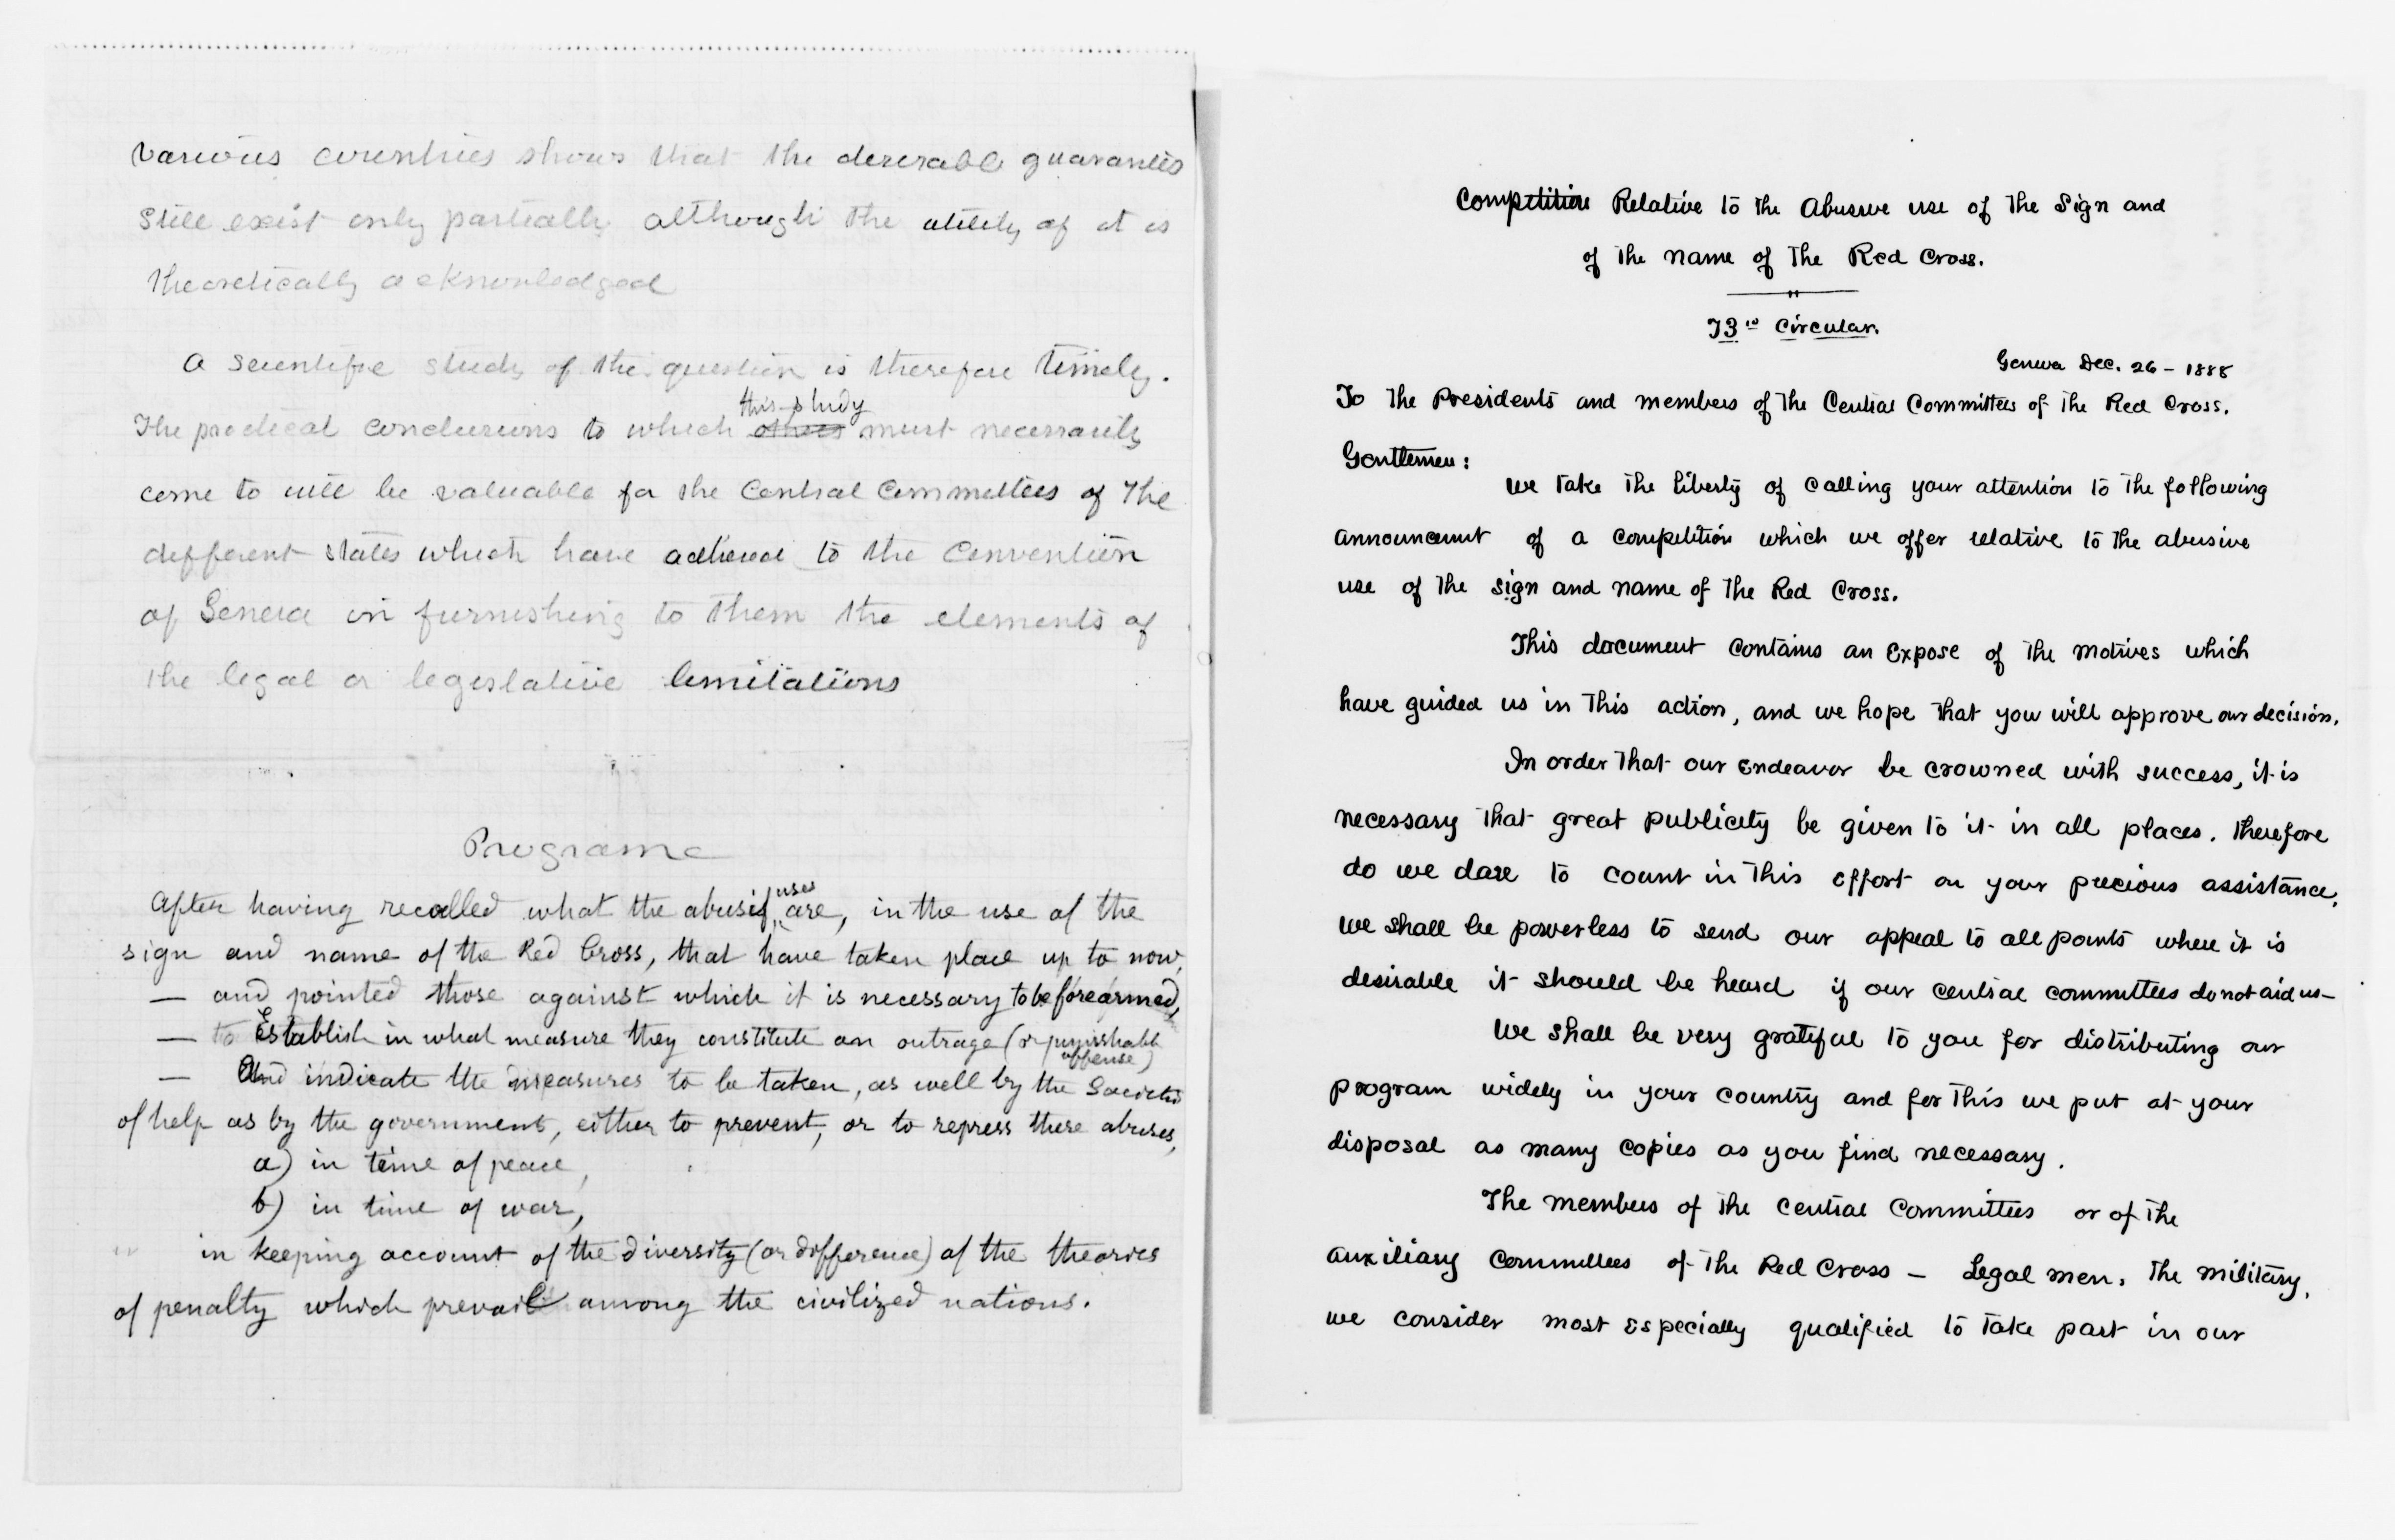 various countries shows that the desirable guaranties
still exist only partially although the utility of it is
theoretically acknowledged
A scientific study of the question is therefore timely.
this study
The practical conclusions to which others must necessarily
come to will be valuable for the Central Committees of the
different states which have adhered to the Convention
of Geneva in furnishing to them the elements of
the legal or legislative limitations
Programe
After having recalled what the abusif uses are, in the use of the
sign and name of the Red Cross, that have taken place up to now,
— and pointed those against which it is necessary to be forearmed,
— to Establish in what measure they constitute an outrage (or punishable
offense)
— And indicate the measures to be taken, as well by the Societies
of help as by the government, either to prevent, or to repress these abuses,
a) in time of peace,
b) in time of war,
in keeping account of the diversity (or difference) of the theories
of penalty which prevail among the civilized nations.
Competition Relative to the Abusive use of the Sign and
of the name of The Red Cross.
73rd Circular.
Geneva Dec. 26 - 1888
To the Presidents and members of the Central Committees of the Red Cross.
Gentlemen:
We take the liberty of calling your attention to the following
announcement of a competition which we offer relative to the abusive
use of the sign and name of the Red Cross.
This document contains an Expose of the motives which
have guided us in this action, and we hope that you will approve our decision.
In order that our endeavor be crowned with success, it is
necessary that great publicity be given to it in all places. Therefore
do we dare to count in this effort on your precious assistance.
We shall be powerless to send our appeal to all points where it is
desirable it should be heard if our central committees do not aid us—
We shall be very grateful to you for distributing our
program widely in your country and for this we put at your
disposal as many copies as you find necessary.
The members of the Central Committees or of the
auxiliary Committees of the Red Cross — Legal men, the military,
we consider most especially qualified to take part in our